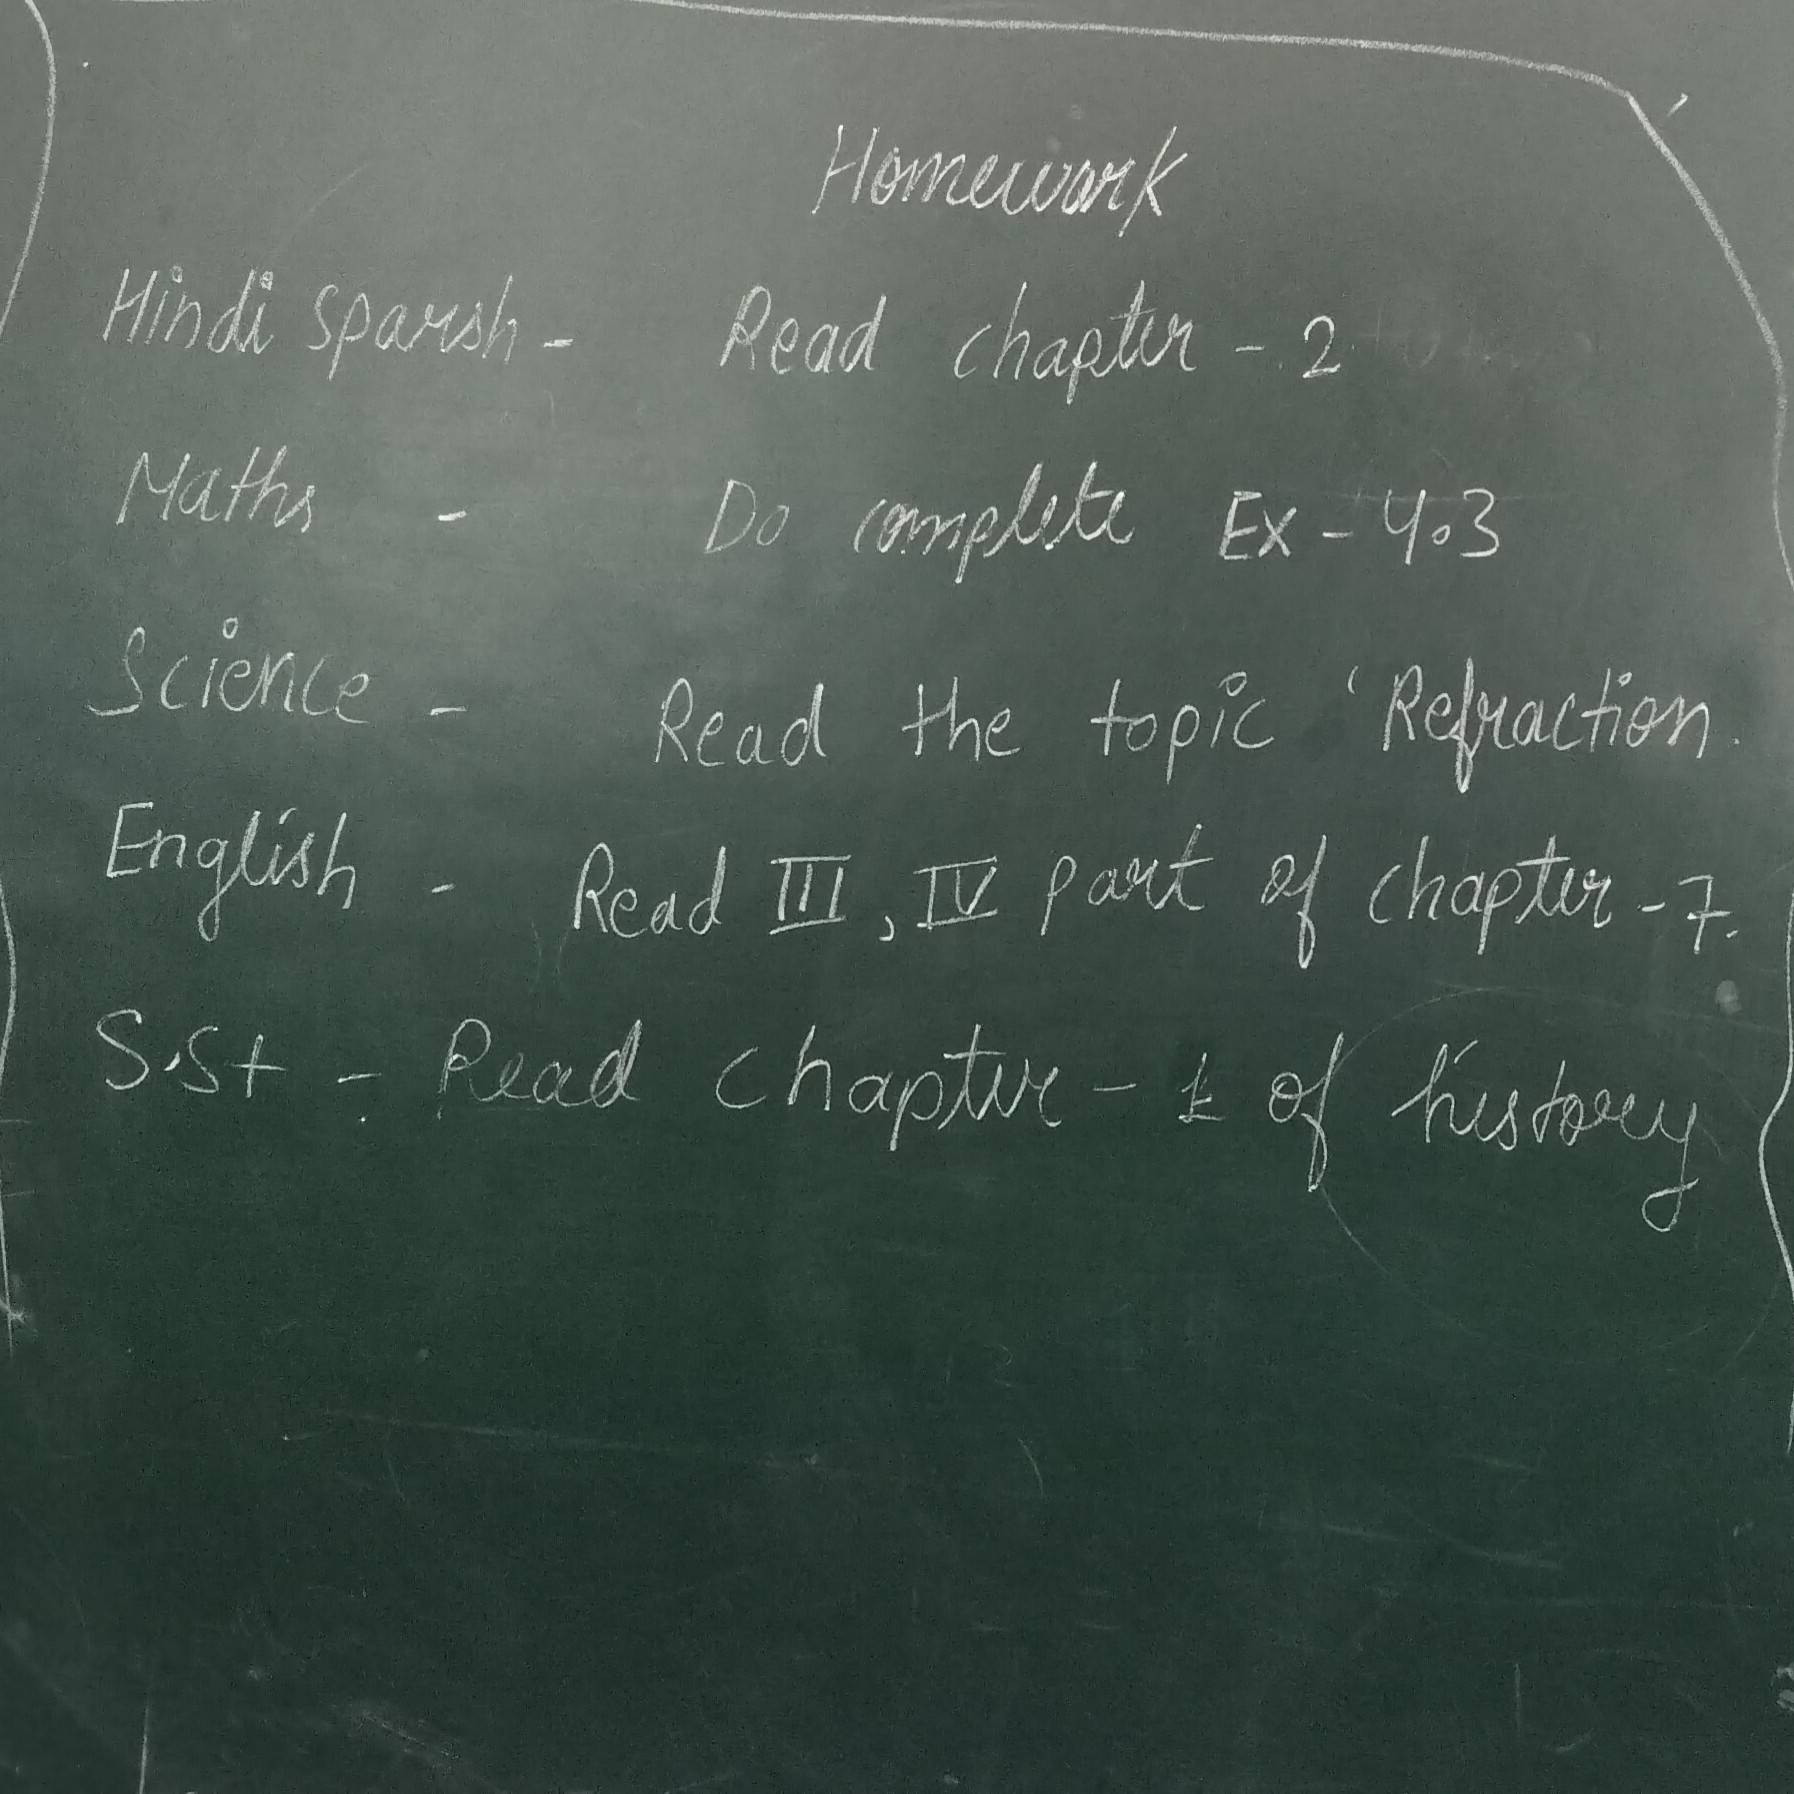 Homework
Hindi Sparsh - Read chapter - 2
Maths - Do complete Ex - 4.3
Science - Read the topic 'Refraction.
English - Read III, IV part of chapter - 7.
S.St - Read chapter - 1 of history